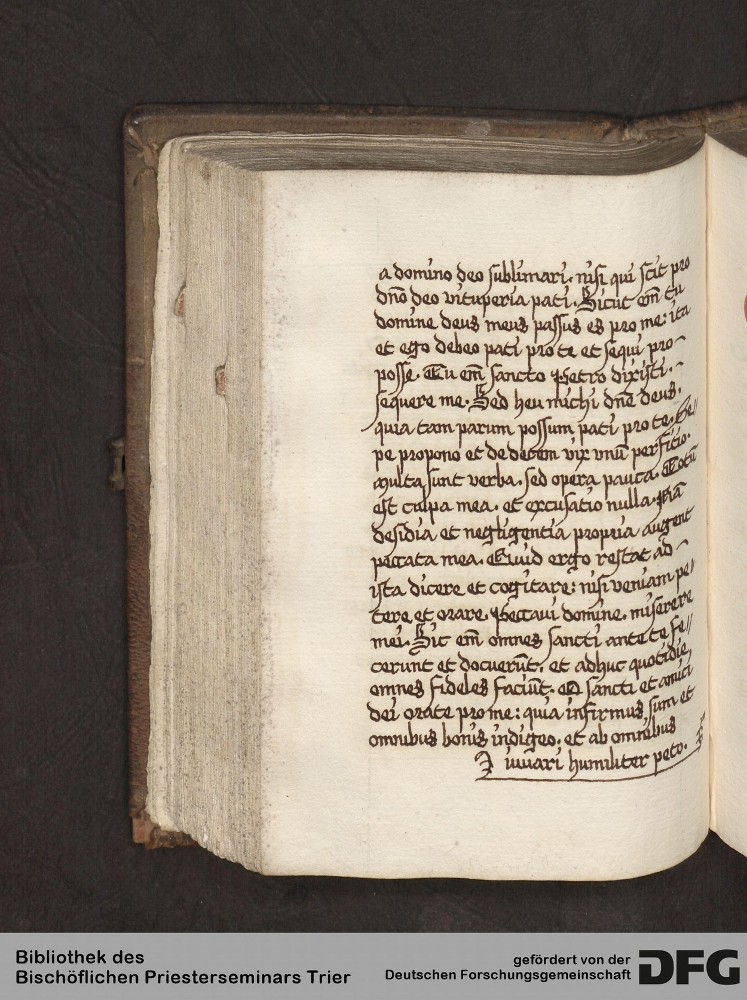 a domino deo sublimari. nisi qui scit pro
dn̄o deo vituperia pati. Sicut em̄ tu
domine deus meus passus es pro me: ita
et ego debeo pati pro te et sequi pro-
posse. Tu em̄ sancto Petro dixisti.
sequere me. Sed heu michi dn̄e deus.
quia tam parum possum pati pro te. Se//
pe propono et de decem vix vnū perficio.
Multa sunt verba. sed opera pauca. Totū
est culpa mea. et excusatio nulla. Nā
desidia et negligentia propria augent
peccata mea. Quid ergo restat ad-
ista dicere et cogitare: nisi veniam pe//
tere et orare. Peccaui domine. miserere
mei. Sic em̄ omnes sancti ante te fe//
cerunt et docuerūt. et adhuc quotidie
omnes fideles faciūt. O sancti et amici
dei orate pro me: quia infirmus sum et
omnibus bonis indigeo. et ab omnibus
iuuari humiliter peto.
Bibliothek des
Bischöflichen Priesterseminars Trier
gefördert von der
Deutschen Forschungsgemeinschaft
DFG